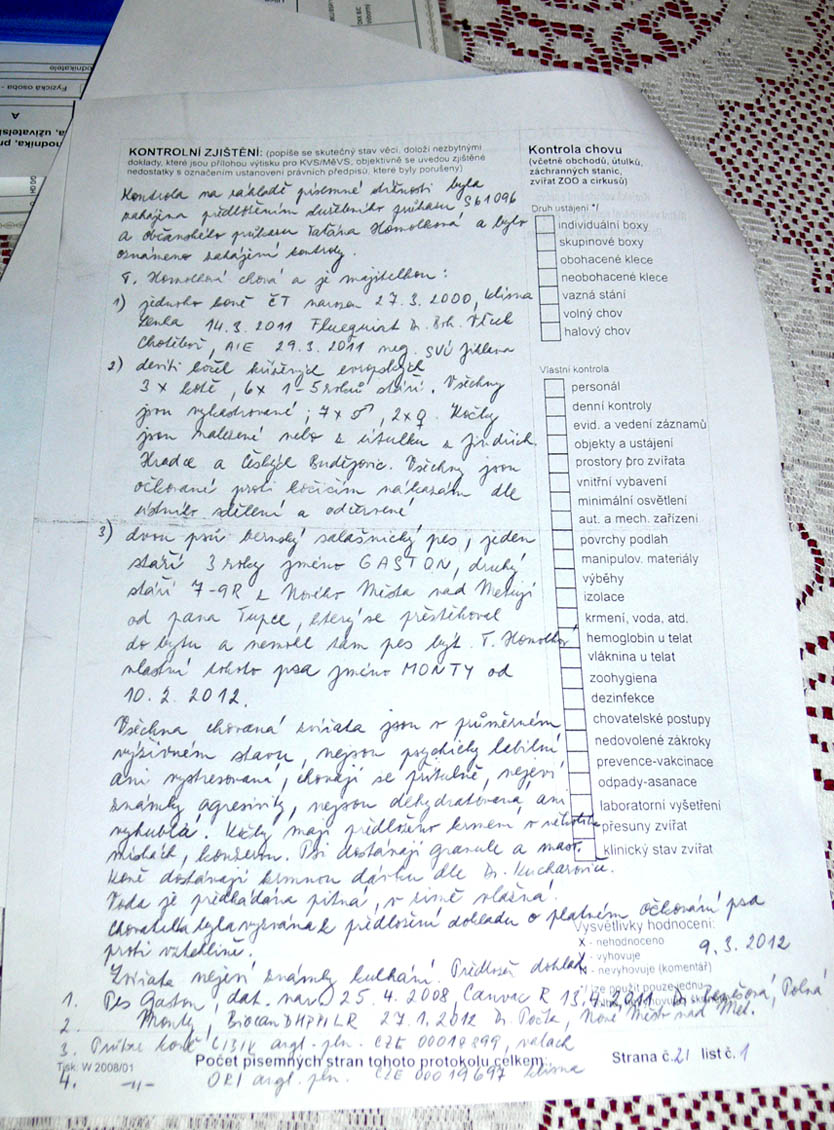 Fyzická osoba -
A
KONTROLNÍ ZJIŠTĚNÍ: (popíše se skutečný stav věcí, doloží nezbytnými
doklady, které jsou přílohou výtisku pro KVS/MěVS, objektivně se uvedou zjištěné
nedostatky s označením ustanovení právních předpisů, které byly porušeny)
Kontrola na základě písemné stížnosti byla
zahájena předložením služebního průkazu S61096
a občanského průkazu Taťána Homolková a bylo
oznámeno zahájení kontroly.
T. Homolková chová a je majitelkou:
1) jednoho koně ČT narozen 27.3.2000, klisna
Lenka 14.3.2011 Fluequint Dr. Boh. Vlček
Chotěboř, AIE 29.3.2011 neg. SVÚ Jihlava
2) devíti koček křížených evropských
3x kotě, 6x 1-5 roků stáří. Všechny
jsou vykastrované, 7x ♂, 2x ♀. Kočky
jsou nalezené nebo z útulku z Jindřich.
Hradce a Českých Budějovic. Všechny jsou
očkované proti kočičím nákazám dle
ústního sdělení a odčervené
3) dvou psů bernský salašnický pes, jeden
stáří 3 roky jméno GASTON, druhý
stáří 7-9R z Nového Města nad Metují
od pana Tupce, který se přestěhoval
do bytu a nemohl tam pes být. T. Homolková
vlastní tohoto psa jméno MONTY od
10.2.2012.
Všechna chovaná zvířata jsou v průměrném
výživném stavu, nejsou psychicky labilní
ani vystresovaná, chovají se přítulně, nejeví
známky agresivity, nejsou dehydratovaná, ani
vyhublá. Kočky mají předloženo krmení v
miskách, konzervu. Psi dostávají granule a maso.
Koně dostávají krmnou dávku dle Dr. Kucharovič.
Voda je předkládána pitná, v zimě vlažná.
Chovatelka byla vyzvána k předložení dokladu o platném očkování psa
proti vzteklině. 9.3.2012
Zvířata nejeví známky kulhání. Předloží doklad
1. Pes Gaston, dat. nar. 25.4.2008, Canvac R 13.4.2011 Dr. Benešová, Polná
2. Monty, Biocan DHPPI LR 27.1.2012 Dr. Počta, Nové Město nad Met.
3. Průkaz koně angl. pln. CZE 00018899, valach
4. -"- ORI angl. pln. CZE 00019697 klisna
Tisk: W 2008/01
Počet písemných stran tohoto protokolu celkem:
Strana č.2/ list č.1
Kontrola chovu
(včetně obchodů, útulků,
záchranných stanic,
zvířat ZOO a cirkusů)
Druh ustájení */
individuální boxy
skupinové boxy
obohacené klece
neobohacené klece
vazná stání
volný chov
halový chov
Vlastní kontrola
personál
denní kontroly
evid. a vedení záznamů
objekty a ustájení
prostory pro zvířata
vnitřní vybavení
minimální osvětlení
aut. a mech. zařízení
povrchy podlah
manipulov. materiály
výběhy
izolace
krmení, voda, atd.
hemoglobin u telat
vláknina u telat
zoohygiena
dezinfekce
chovatelské postupy
nedovolené zákroky
prevence-vakcinace
odpady-asanace
laboratorní vyšetření
přesuny zvířat
klinický stav zvířat
Vysvětlivky hodnocení:
X - nehodnoceno
- vyhovuje
N - nevyhovuje (komentář)
*/ lze použít pouze jednu